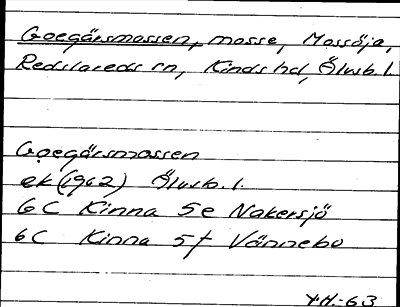 Goegärsmossen, mosse, Mossöja,
Redslareds sn, Kinds hd, Älvsb. l.
Goegärsmossen
ek (1962) Älvsb. l.
6 C Kinna 5 e Nakersjö
6 C Kinna 5 f Vännebo
Y.H.-63